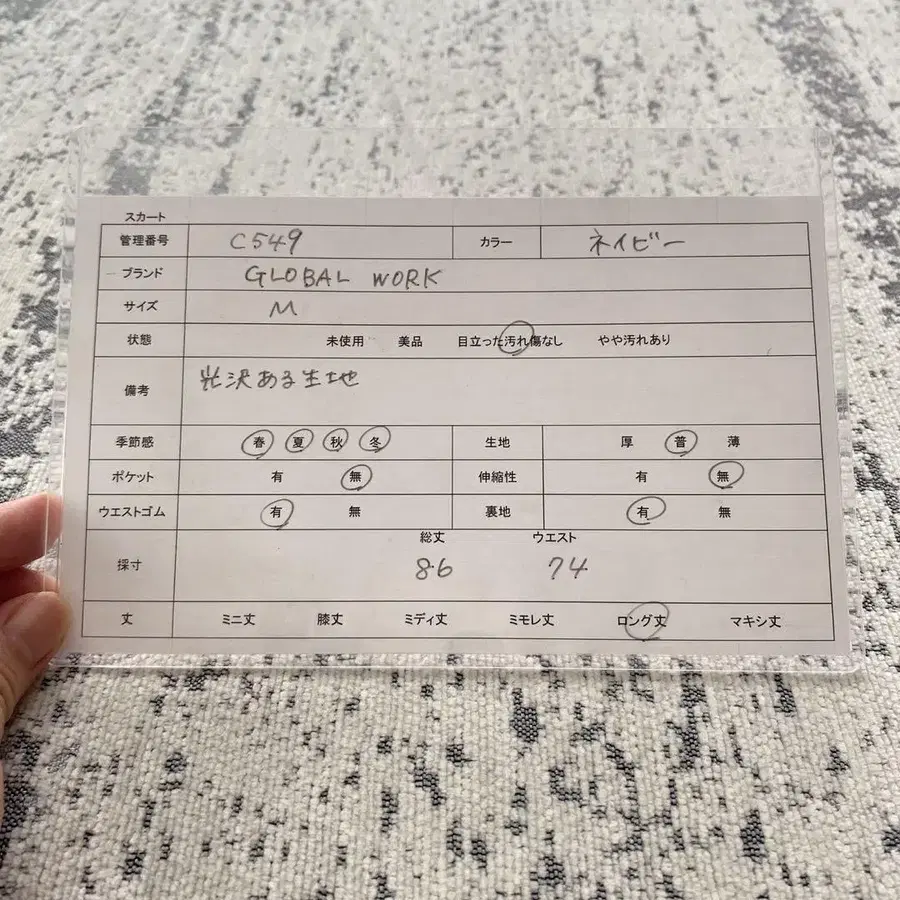 スカート
管理番号 C549 カラー ネイビー
ブランド GLOBAL WORK
サイズ M
状態 未使用 美品 目立った汚れ傷なし やや汚れあり
備考 光沢ある生地
季節感 春 夏 秋 冬 生地 厚 普 薄
ポケット 有 無 伸縮性 有 無
ウエストゴム 有 無 裏地 有 無
総丈 ウエスト
採寸 86 74
丈 ミニ丈 膝丈 ミディ丈 ミモレ丈 ロング丈 マキシ丈